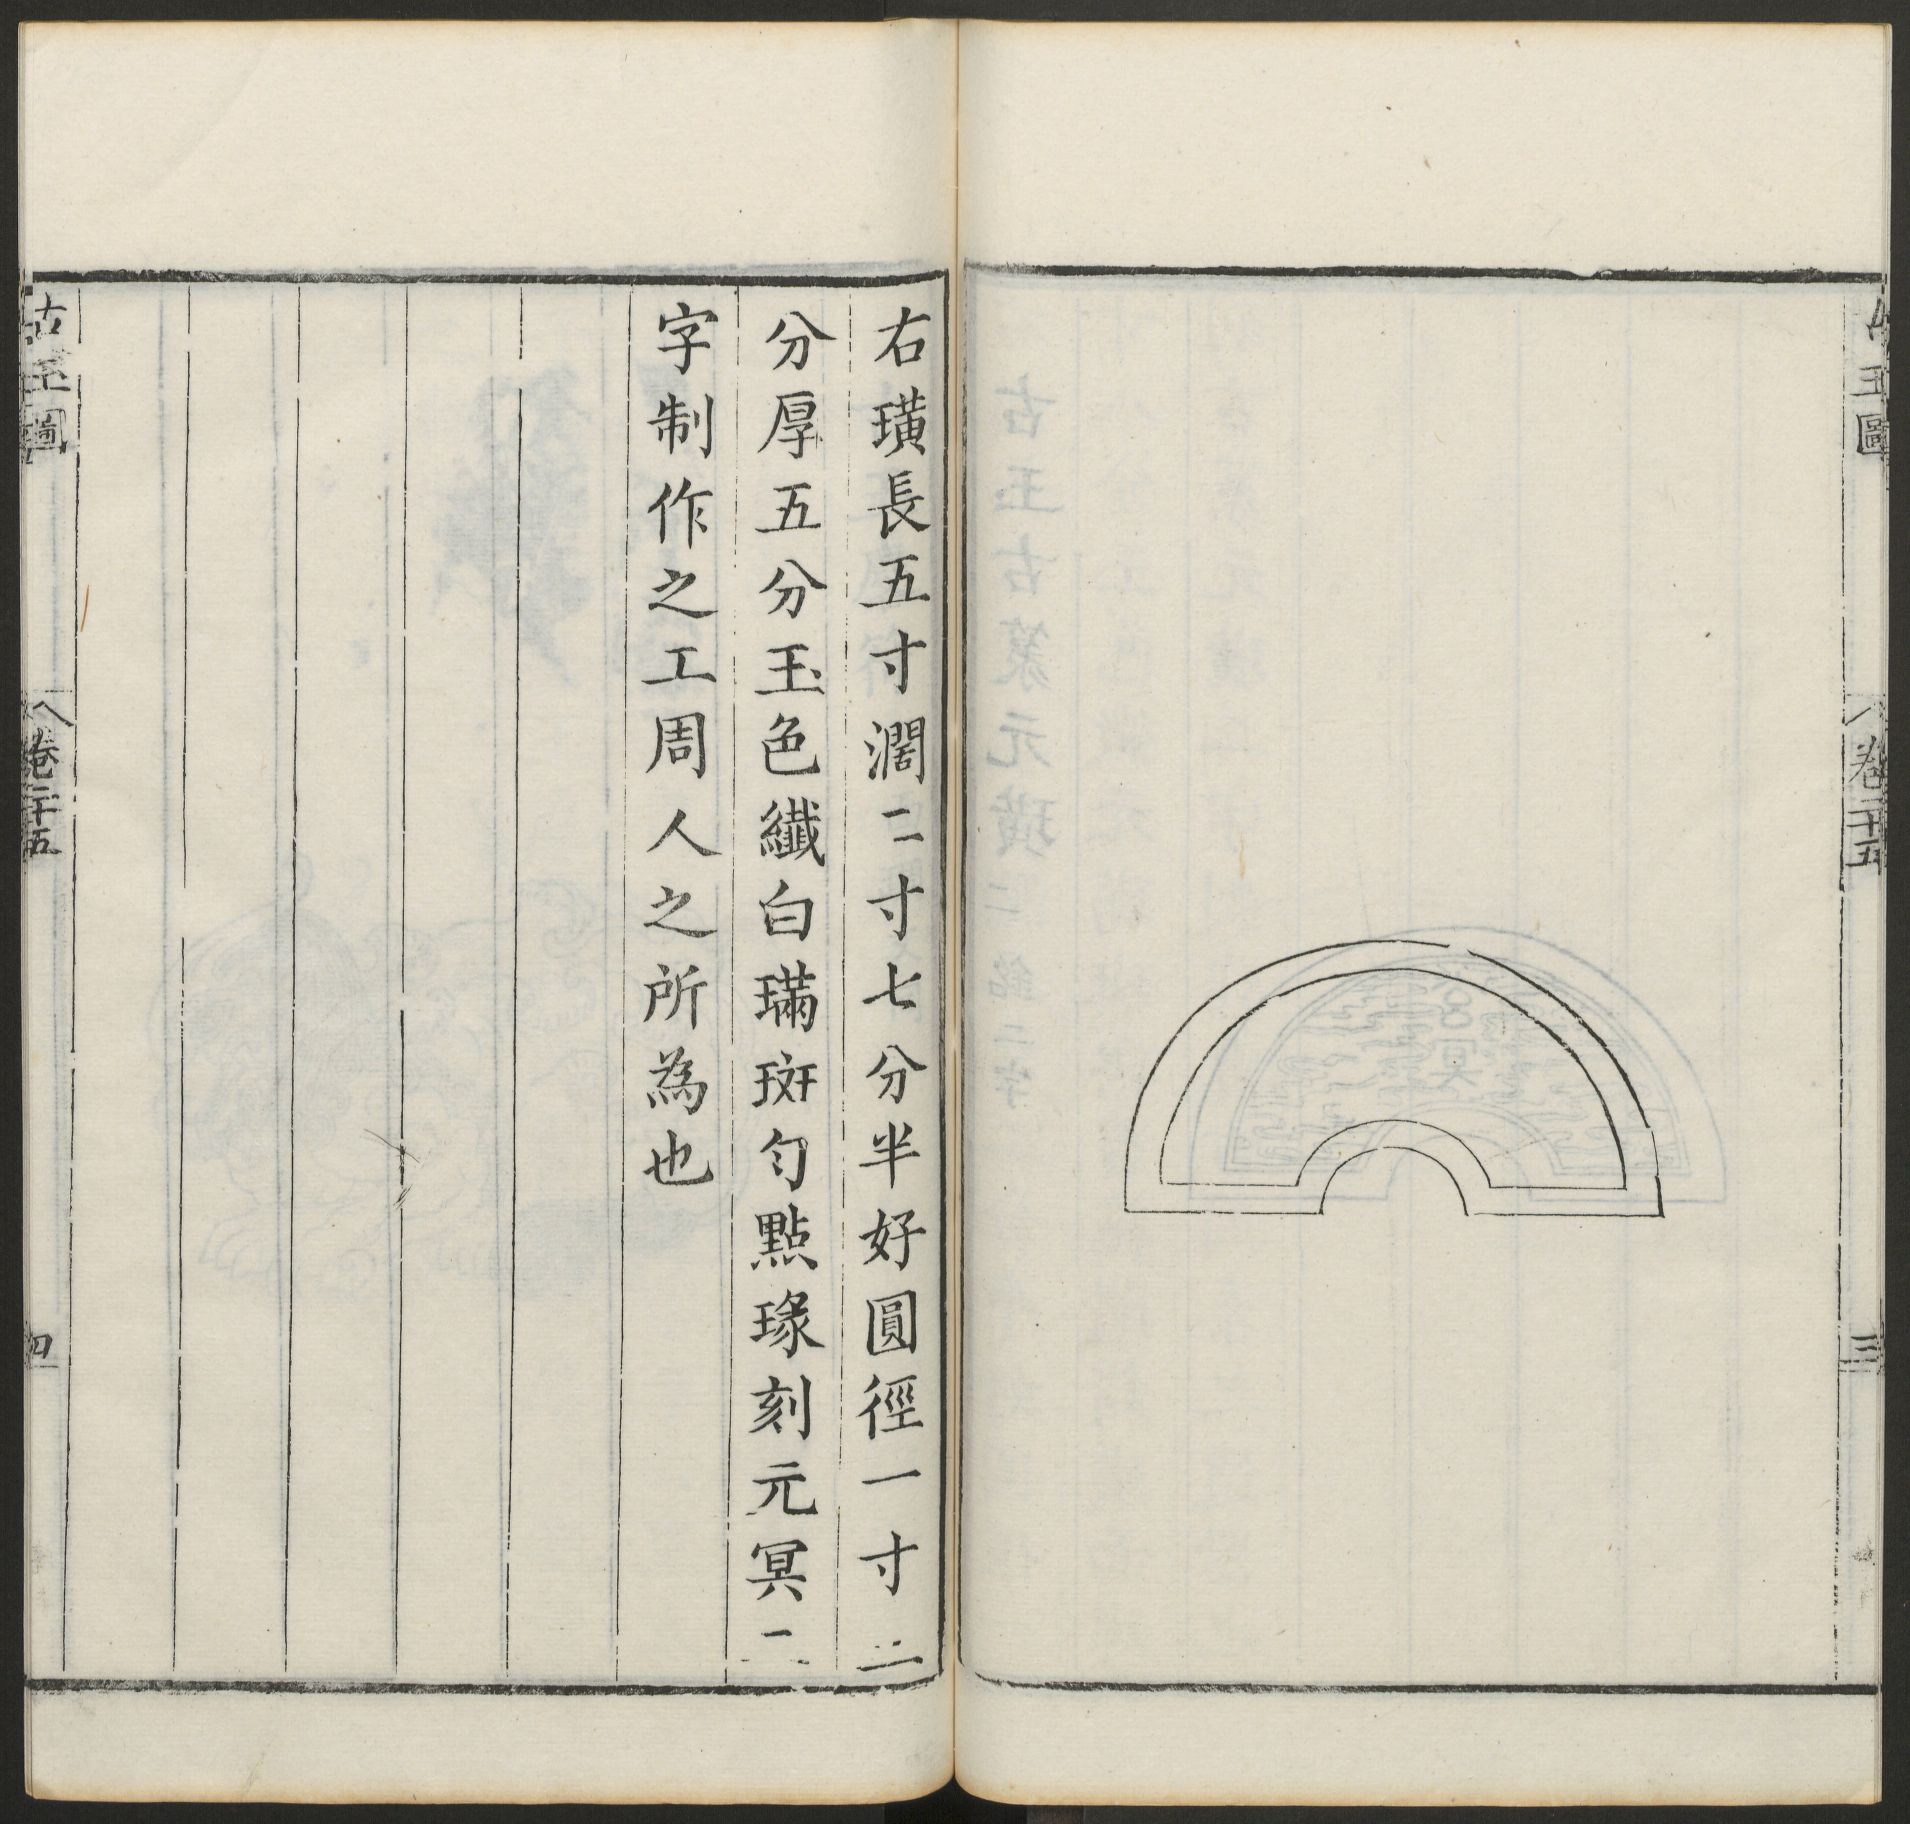 古玉圖
卷二十五
三
右璜長五寸濶二寸七分半好圓徑一寸二
分厚五分玉色纖白璊斑勻點瑑刻元冥二
字制作之工周人之所為也
古玉圖
卷二十五
四